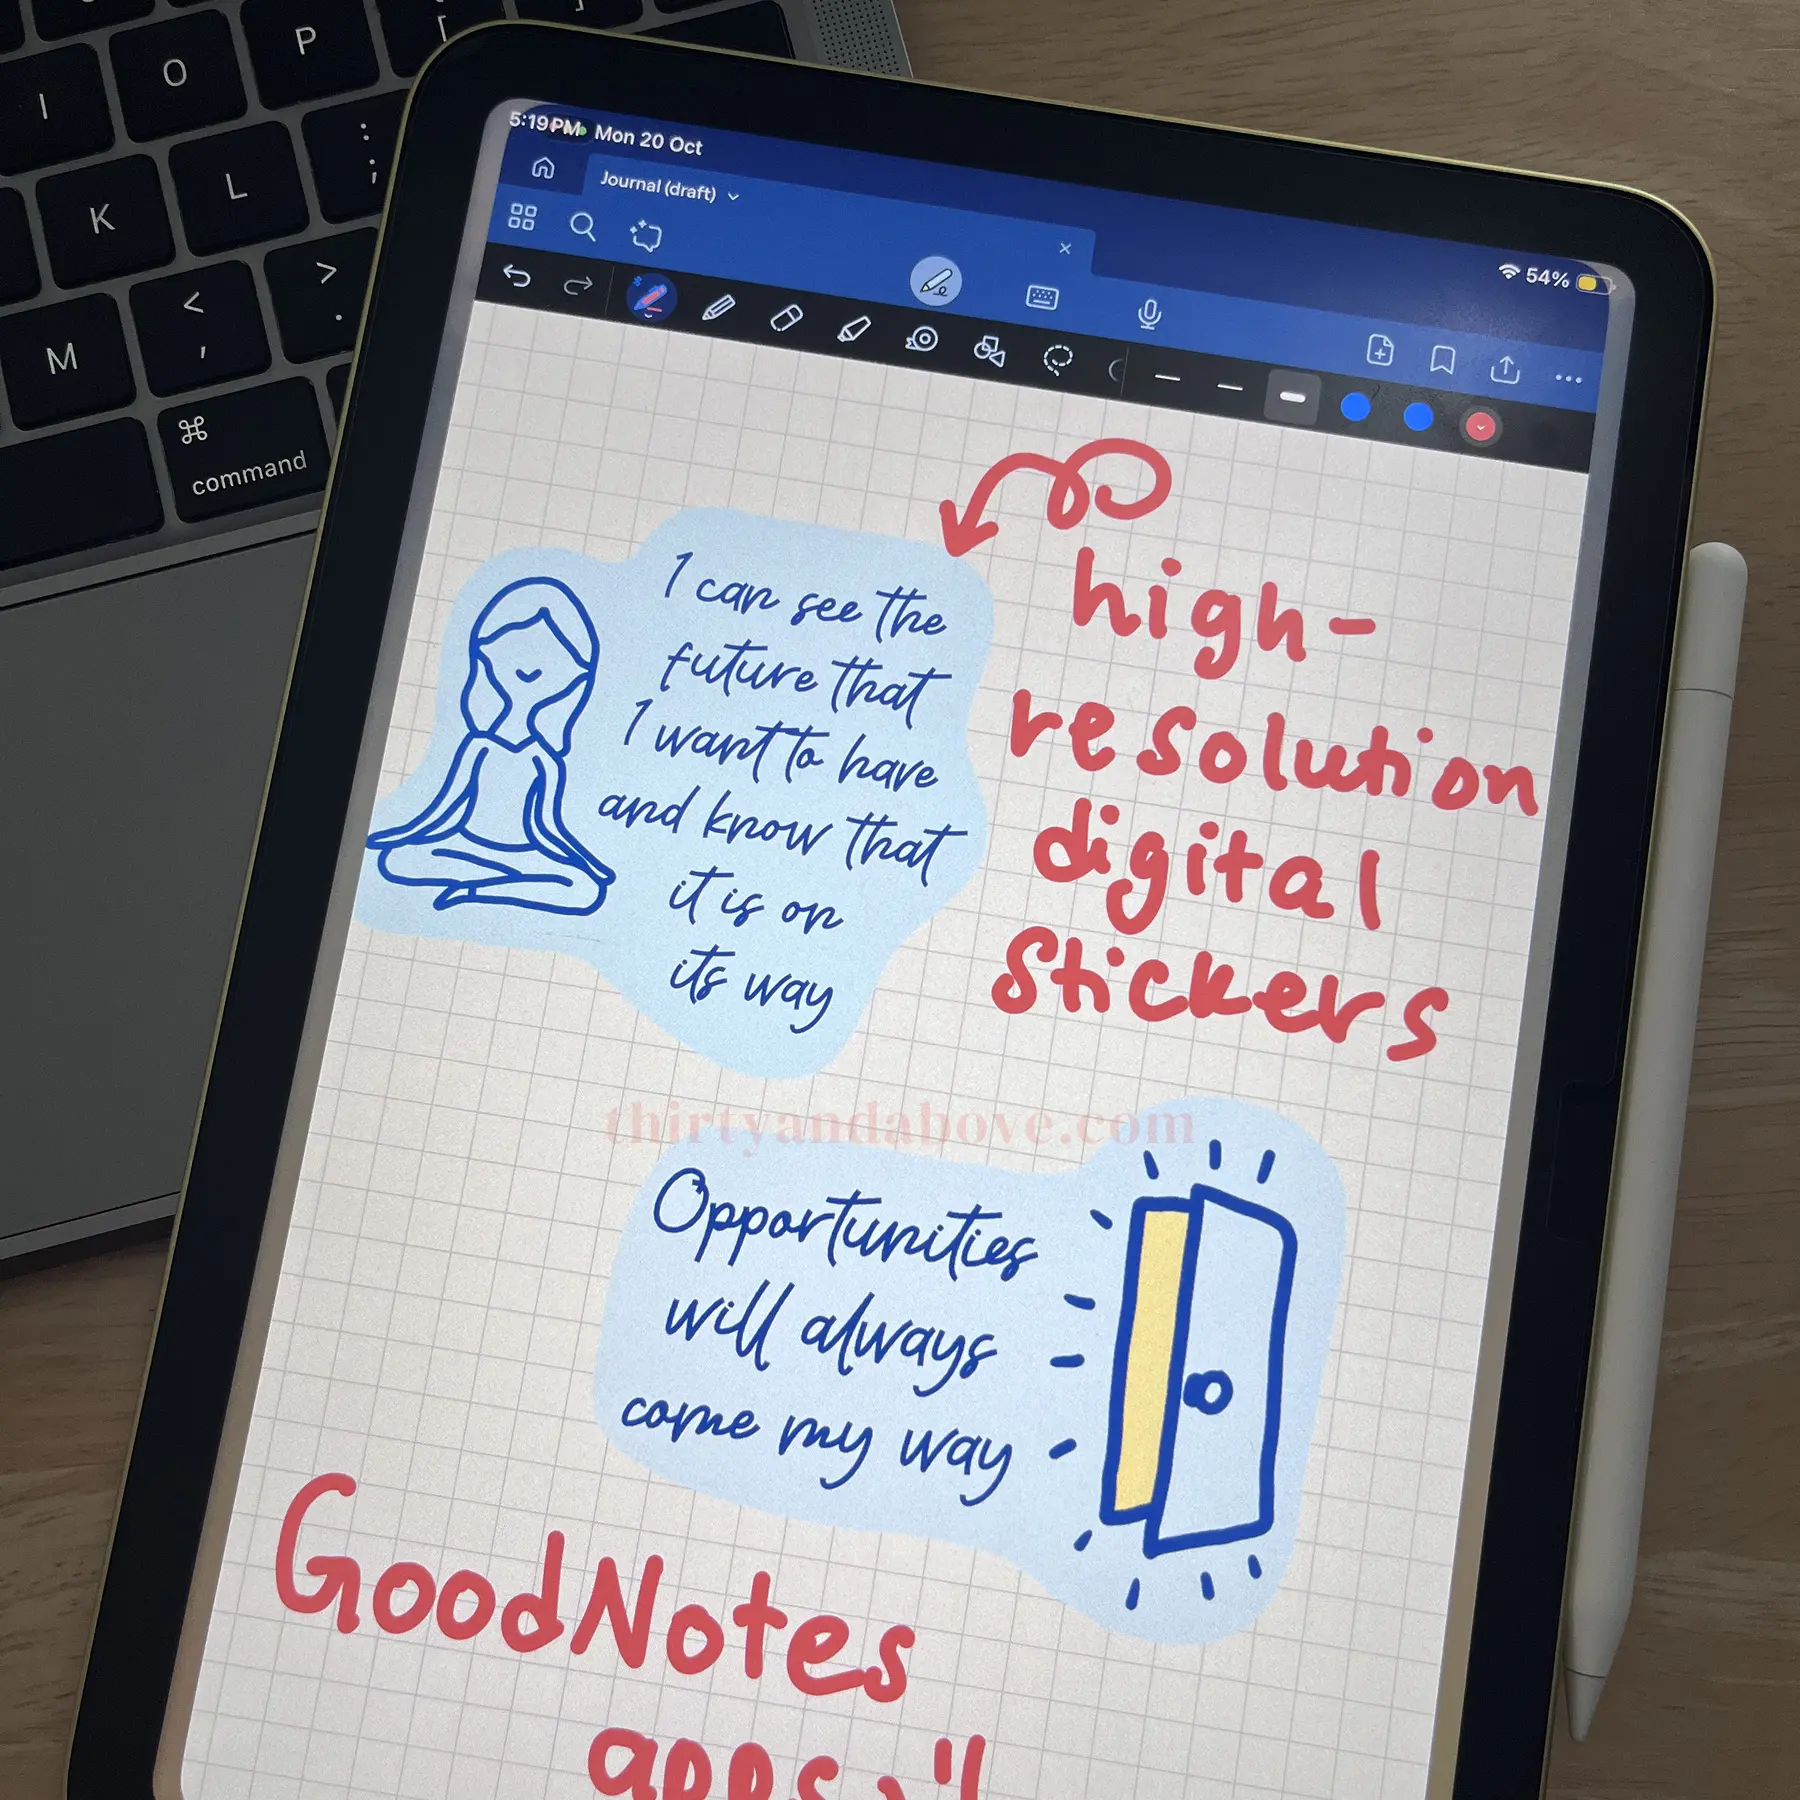 I
O
P
[
K
L
:
;
M
<
,
>
.
⌘
command
5:19 PM Mon 20 Oct
54%
Journal (draft)
high-
resolution
digital
stickers
I can see the
future that
I want to have
and know that
it is on
its way
thirtyandabove.com
Opportunities
will always
come my way
GoodNotes